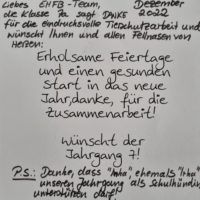 Liebes EHFB-Team, Dezember
die Klasse 7a sagt DANKE 2022
für die eindrucksvolle Tierschutzarbeit und
wünscht Ihnen und allen Fellnasen von
Herzen:
Erholsame Feiertage
und einen gesunden
Start in das neue
Jahrdanke, für die
Zusammenarbeit!
Wünscht der
Jahrgang 7!
P.S.: Danke, dass "Inha", ehemals "Inka"
unseren Jahrgang als Schulhündin
unterstützen darf!